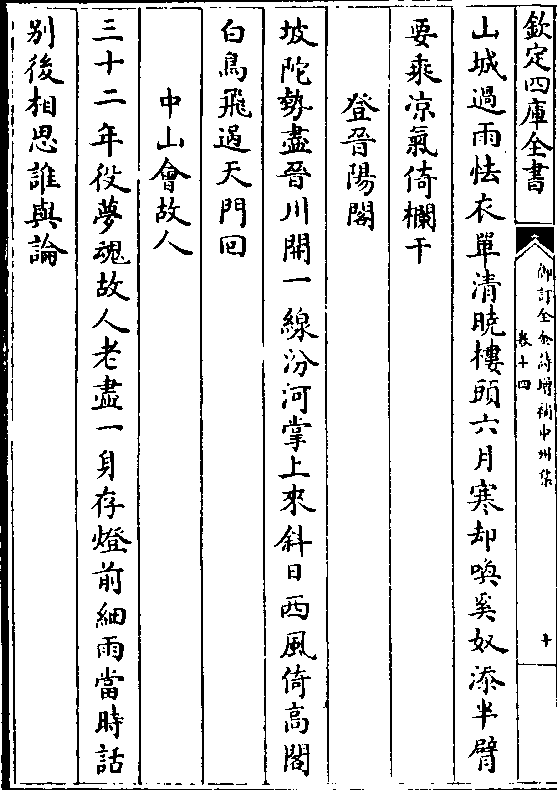 欽定四庫全書
御訂全金詩增補中州集
卷十四
十
山城過雨怯衣單清曉樓頭六月寒却喚奚奴添半臂
要乘凉氣倚欄干
登晉陽閣
坡陀勢盡晉川開一線汾河掌上來斜日西風倚高閣
白鳥飛過天門回
中山會故人
三十二年役夢魂故人老盡一身存燈前細雨當時話
别後相思誰與論